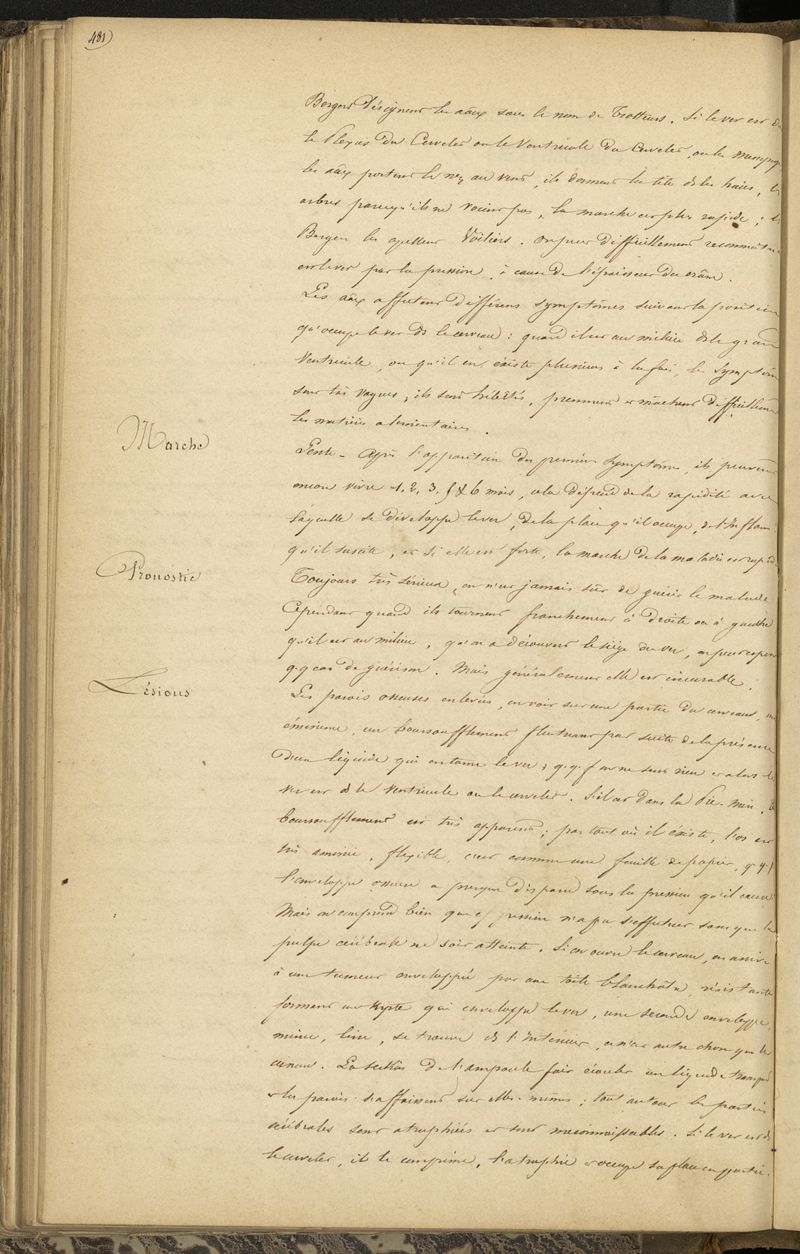 481)
Bergers désignent les aāux sous le nom de Trotteurs. Si le ver est d
le Plexus du Cervelet ou le Ventricule du Cervelet, ou les
les aāux portent le nez au vent, ils donnent la tête ds les haies, les
arbres parcequ'ils ne voient pas, la marche est plus rapide ; les
Bergers les appellent Voiliers. On peut difficillement reconnaitre
le ver par la pression, à cause de l'épaisseur du crâne.
Les aāux affectent différens symptômes suivant la position
qu'occupe le ver ds le cerveau : quand il est au milieu ds le grand
Ventricule, ou qu'il en existe plusieurs à la fois, les symptôm
sont très vagues, ils sont hébétés, prennent et mâchent difficillem
les matières alimentaires.
Marche
Lente - Après l'apparition des premiers symptôme, ils peuvent
encore vivre 1, 2, 3, 5 & 6 mois, cela dépend de la rapidité avec
laquelle se développe le ver, de la place qu'il occupe, de l'inflam
qu'il suscite, et si elle est forte, la marche de la maladie est rapid
Pronostic
Toujours très sérieux, on n'est jamais sûr de guérir le malade
Cependant quand ils tournent franchement à droite ou à gauche
qu'il est au milieu, qu'on a découvert le siège du ver, on peut espérer
q.q cas de guérison. Mais généralement elle est incurable.
Lésions
Les parois osseuses enlevées, on voit sur une partie du cerveau, une
éminence, un boursoufflement fluctuant par suite de la présence
d'un liquide qui entoure le ver ; q.q.f on ne sent rien et alors le
ver est ds le ventricule ou le cervelet. S'il est dans la Pie-Mère, le
boursoufflement est très apparent ; par tout où il existe, l'os est
très aminci, flexible, c'est comme une feuille de papier, q.q.f
l'enveloppe osseuse a presque disparu sous la pression qu'il exerce
Mais on comprend bien que cs pression n'a pu s'effectuer sans que la
pulpe cérébrale ne soit atteinte. Si on ouvre le cerveau, on arrive
à une tumeur enveloppée par une toile blanchâtre, résistante
formant un kyste qui enveloppe le ver, une seconde enveloppe,
mince, lisse, se trouve ds l'intérieur, ce n'est autre chose que le
La section de l'ampoule fait écouler un liquide transp
et les parois s'affaissent sur elles-mêmes ; tout autour les parties
cérébrales sont atrophiées et sont méconnaissables. Si le ver est ds
le cervelet, il le comprime, l'atrophie et occupe sa place en partie.